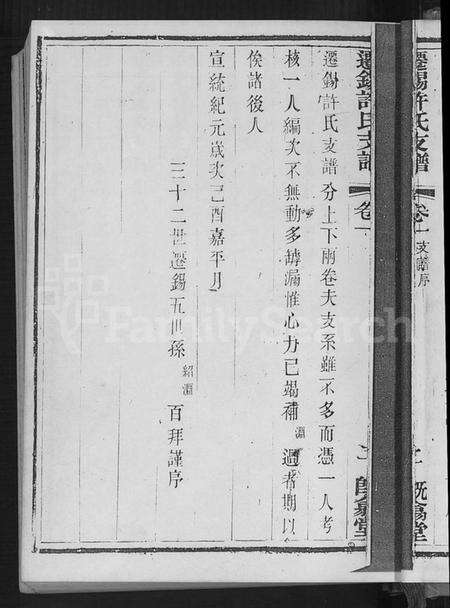 遷錫許氏支譜
卷一
支譜序
二
既翕堂
遷錫許氏支譜
卷一
二
遷錫許氏支譜分上下兩卷夫支系雖不多而憑一人考
核一人編次不無動多罅漏惟心力已竭補淵過者期以
俟諸後人
宣統紀元歲次己酉嘉平月
三十二世遷錫五世孫紹淵百拜謹序
FamilySearch